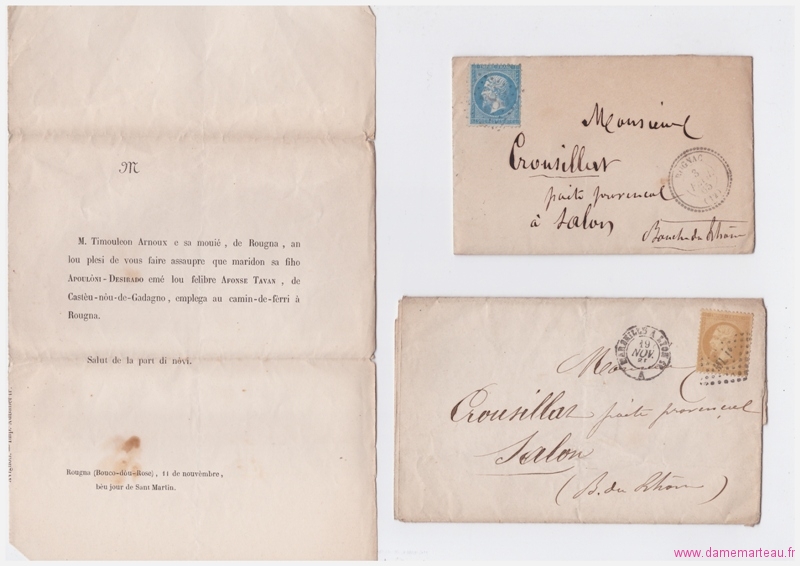 M
M. Timouleon Arnoux e sa mouié, de Rougna, an
lou plesi de vous faire assaupre que maridon sa fiho
Apoulòni-Desirado emé lou felibre Afonse Tavan, de
Castèu-nòu-de-Gadagno, emplega au camin-de-ferri à
Rougna.
Salut de la part di nòvi.
Rougna (Bouco-dóu-Rose), 11 de nouvèmbre,
bèu jour de Sant Martin.
Monsieur
Crousillat
poète provençal
à Salon
Bouches du Rhône
ROGNAC
MARSEILLE A LYON
19
NOV.
A
Crousillat poète provençal
Salon
(B. du Rhône)
www.damemarteau.fr